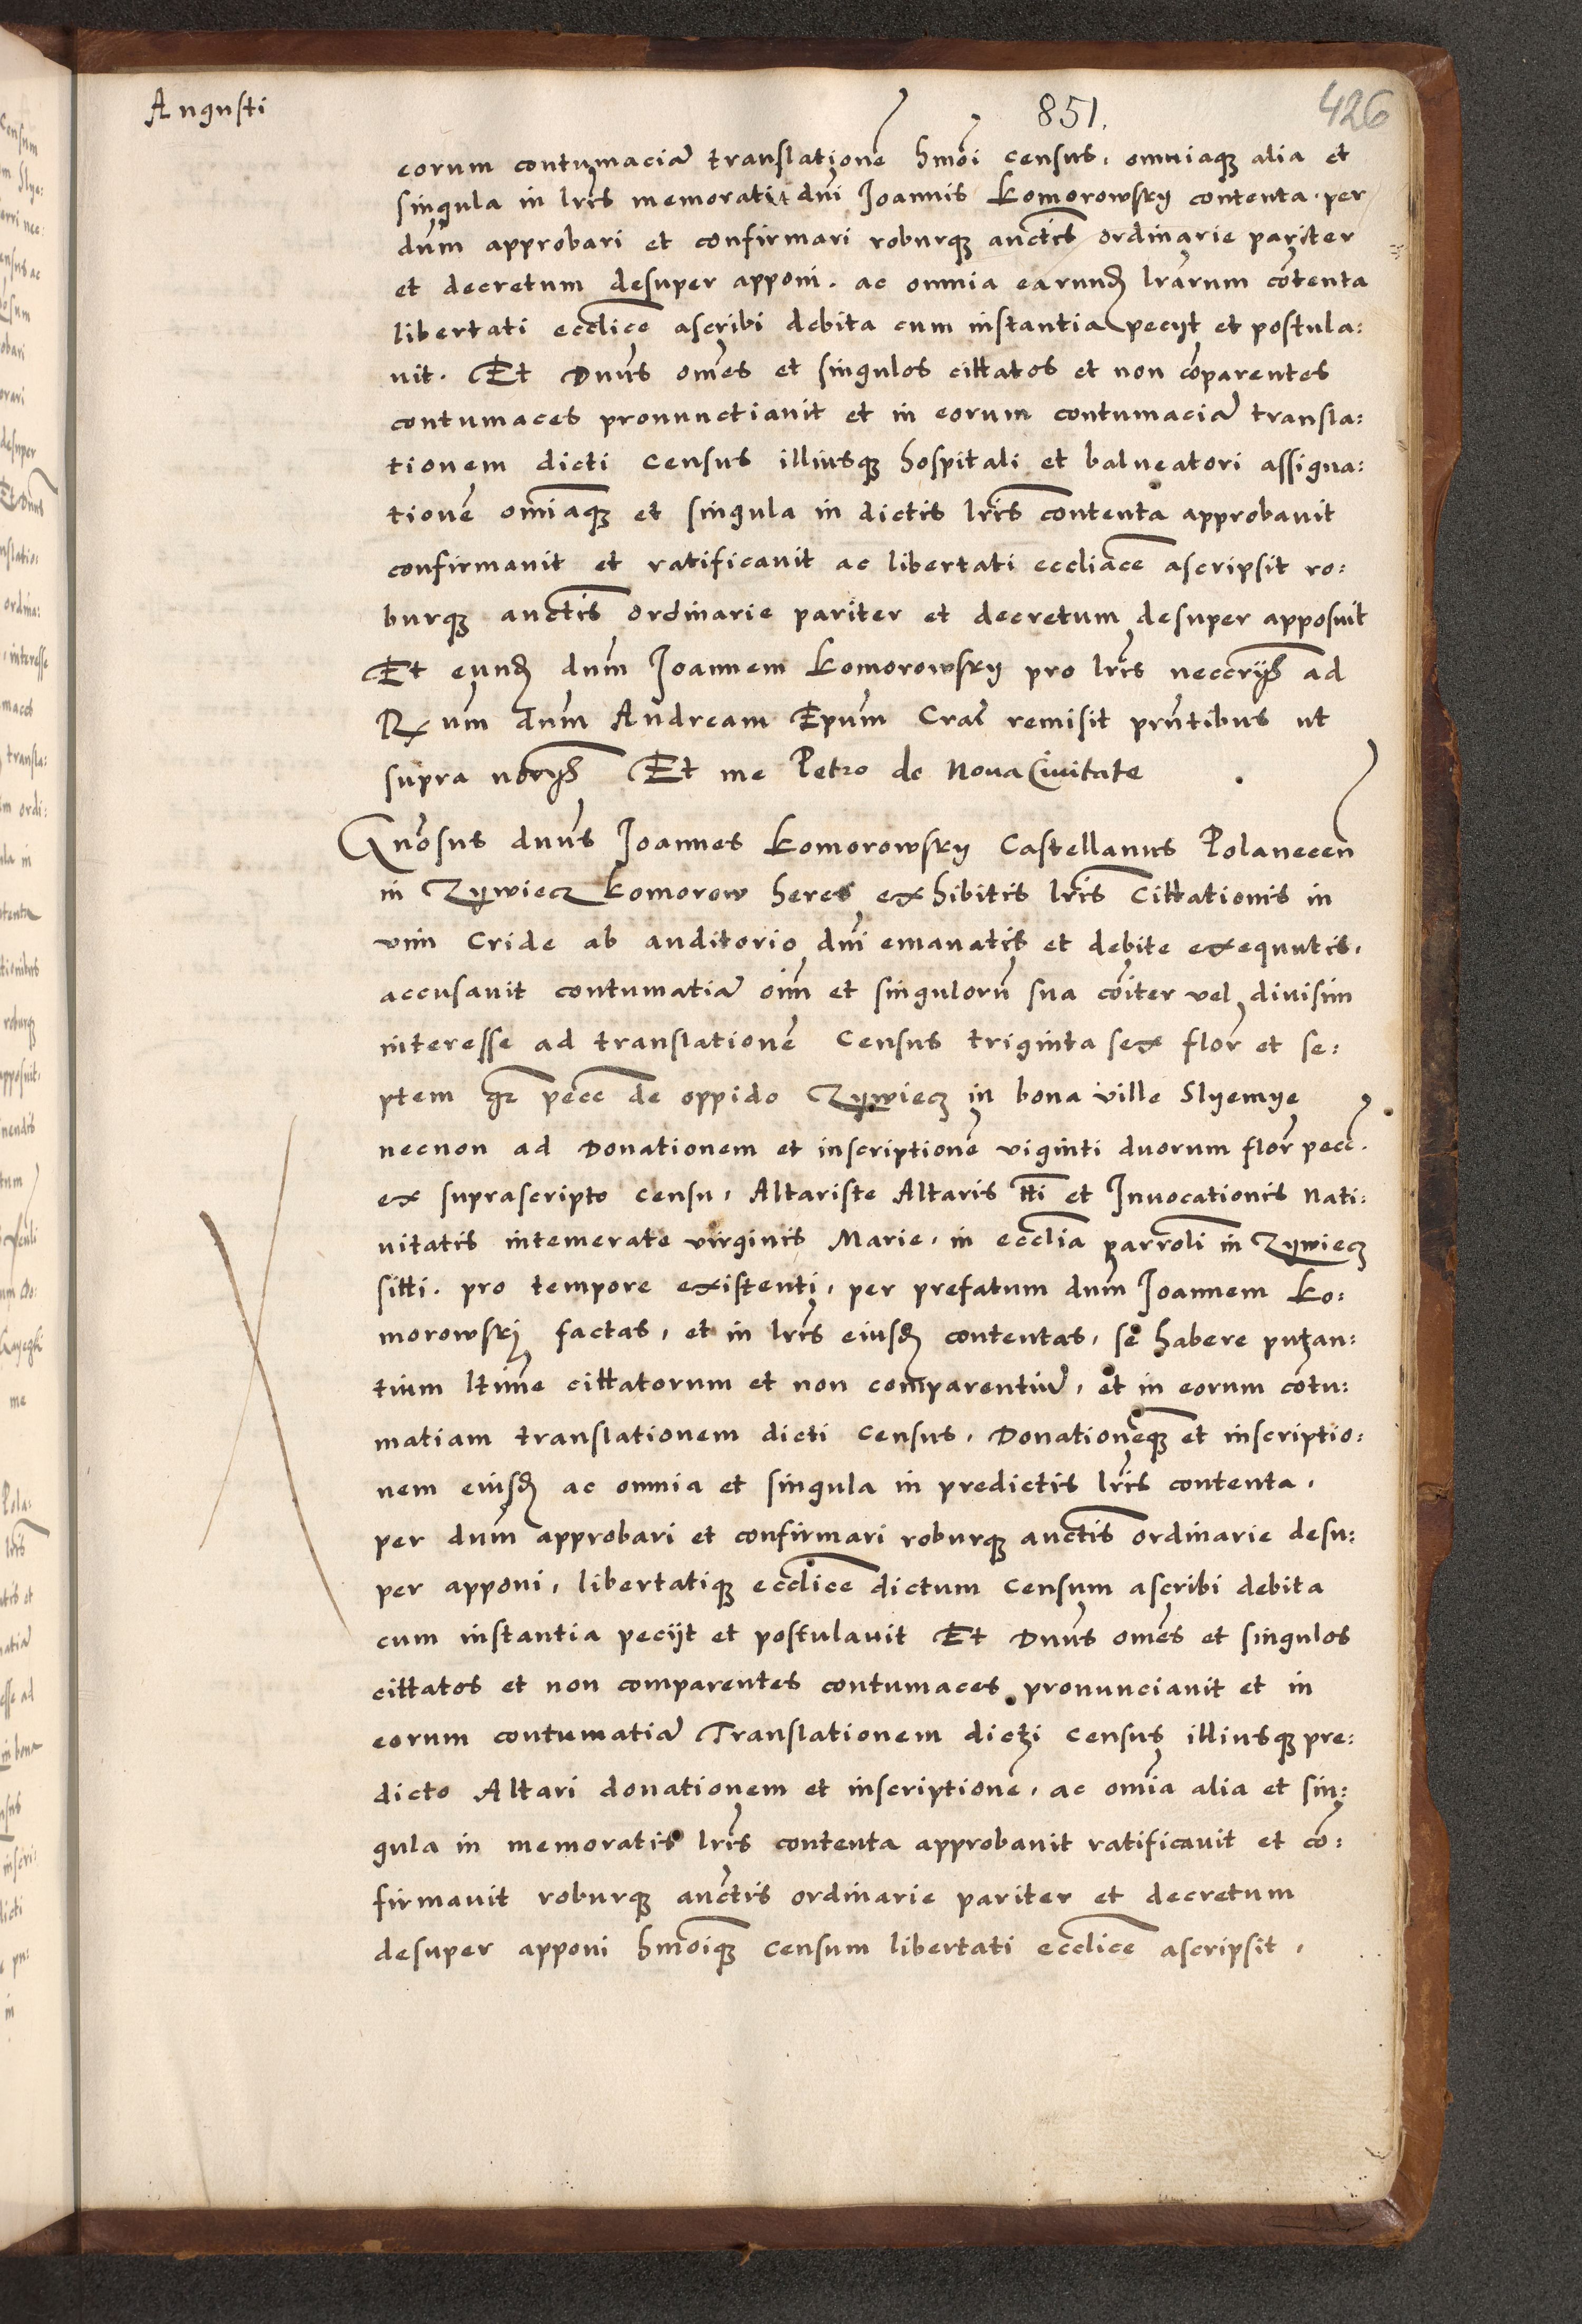 Augusti
851.
426
eorum contumaciã translationẽ hmõi census, omniaqꝫ alia et
singula in lris memorati dni Joannis Komorowsky contenta per
dnum approbari et confirmari roburqꝫ auctis ordinarie pariter
et decretum desuper apponi. ac omnia earundꝫ lrarum cõtenta
libertati ecclice ascribi debita cum instantia pecyt et postula:
uit. Et Dnus omes et singulos cittatos et non cõparentes
contumaces pronunctiauit et in eorum contumaciã transla:
tionem dicti census illiusqꝫ hospitali et balneatori assigna:
tionẽ omiaqꝫ et singula in dictis lris contenta approbauit
confirmauit et ratificauit ac libertati eccliace ascripsit ro:
burqꝫ auctis ordinarie pariter et decretum desuper apposuit
Et eundꝫ dnum Joannem Komorowsky pro lris neccrijs ad
Rx um dnum Andream Epum Crac remisit pntibus ut
supra notrijs Et me Petro de Noua Ciuitate
Gnosus dnus Joannes Komorowsky Castellanus Polanecen
in Zywiecz Komorow heres exhibitis lris Cittationis in
vim Cride ab auditorio dni emanatis et debite exequutis,
accusauit contumatiã oim et singulorũ sua cõiter vel diuisim
interesse ad translationẽ Census triginta sex flor et se:
ptem gr pecc de oppido Zywiecz in bona ville Slyemye
necnon ad Donationem et inscriptionẽ viginti duorum flor pecc.
ex suprascripto censu, Altariste Altaris tti et Inuocationis Nati:
uitatis intemerate virginis Marie, in ecclia parroli in Zywiecz
sitti. pro tempore existenti, per prefatum dnum Joannem Ko:
morowskj factas, et in lris eiusdꝫ contentas, se habere putan:
tium ltime cittatorum et non comparentiũ, et in eorum cõtu:
matiam translationem dicti census, Donationẽqꝫ et inscriptio:
nem eiusdꝫ ac omnia et singula in predictis lris contenta,
per dnum approbari et confirmari roburqꝫ auctis ordinarie desu:
per apponi, libertatiqꝫ ecclice dictum censum ascribi debita
cum instantia pecijt et postulauit Et Dnus omes et singulos
cittatos et non comparentes contumaces pronunciauit et in
eorum contumatiã Translationem dicti census illiusqꝫ pre:
dicto Altari donationem et inscriptionẽ, ac omia alia et sin:
gula in memoratis lris contenta approbauit ratificauit et cõ:
firmauit roburqꝫ auctis ordinarie pariter et decretum
desuper apponi hmoiqꝫ censum libertati ecclice ascripsit,